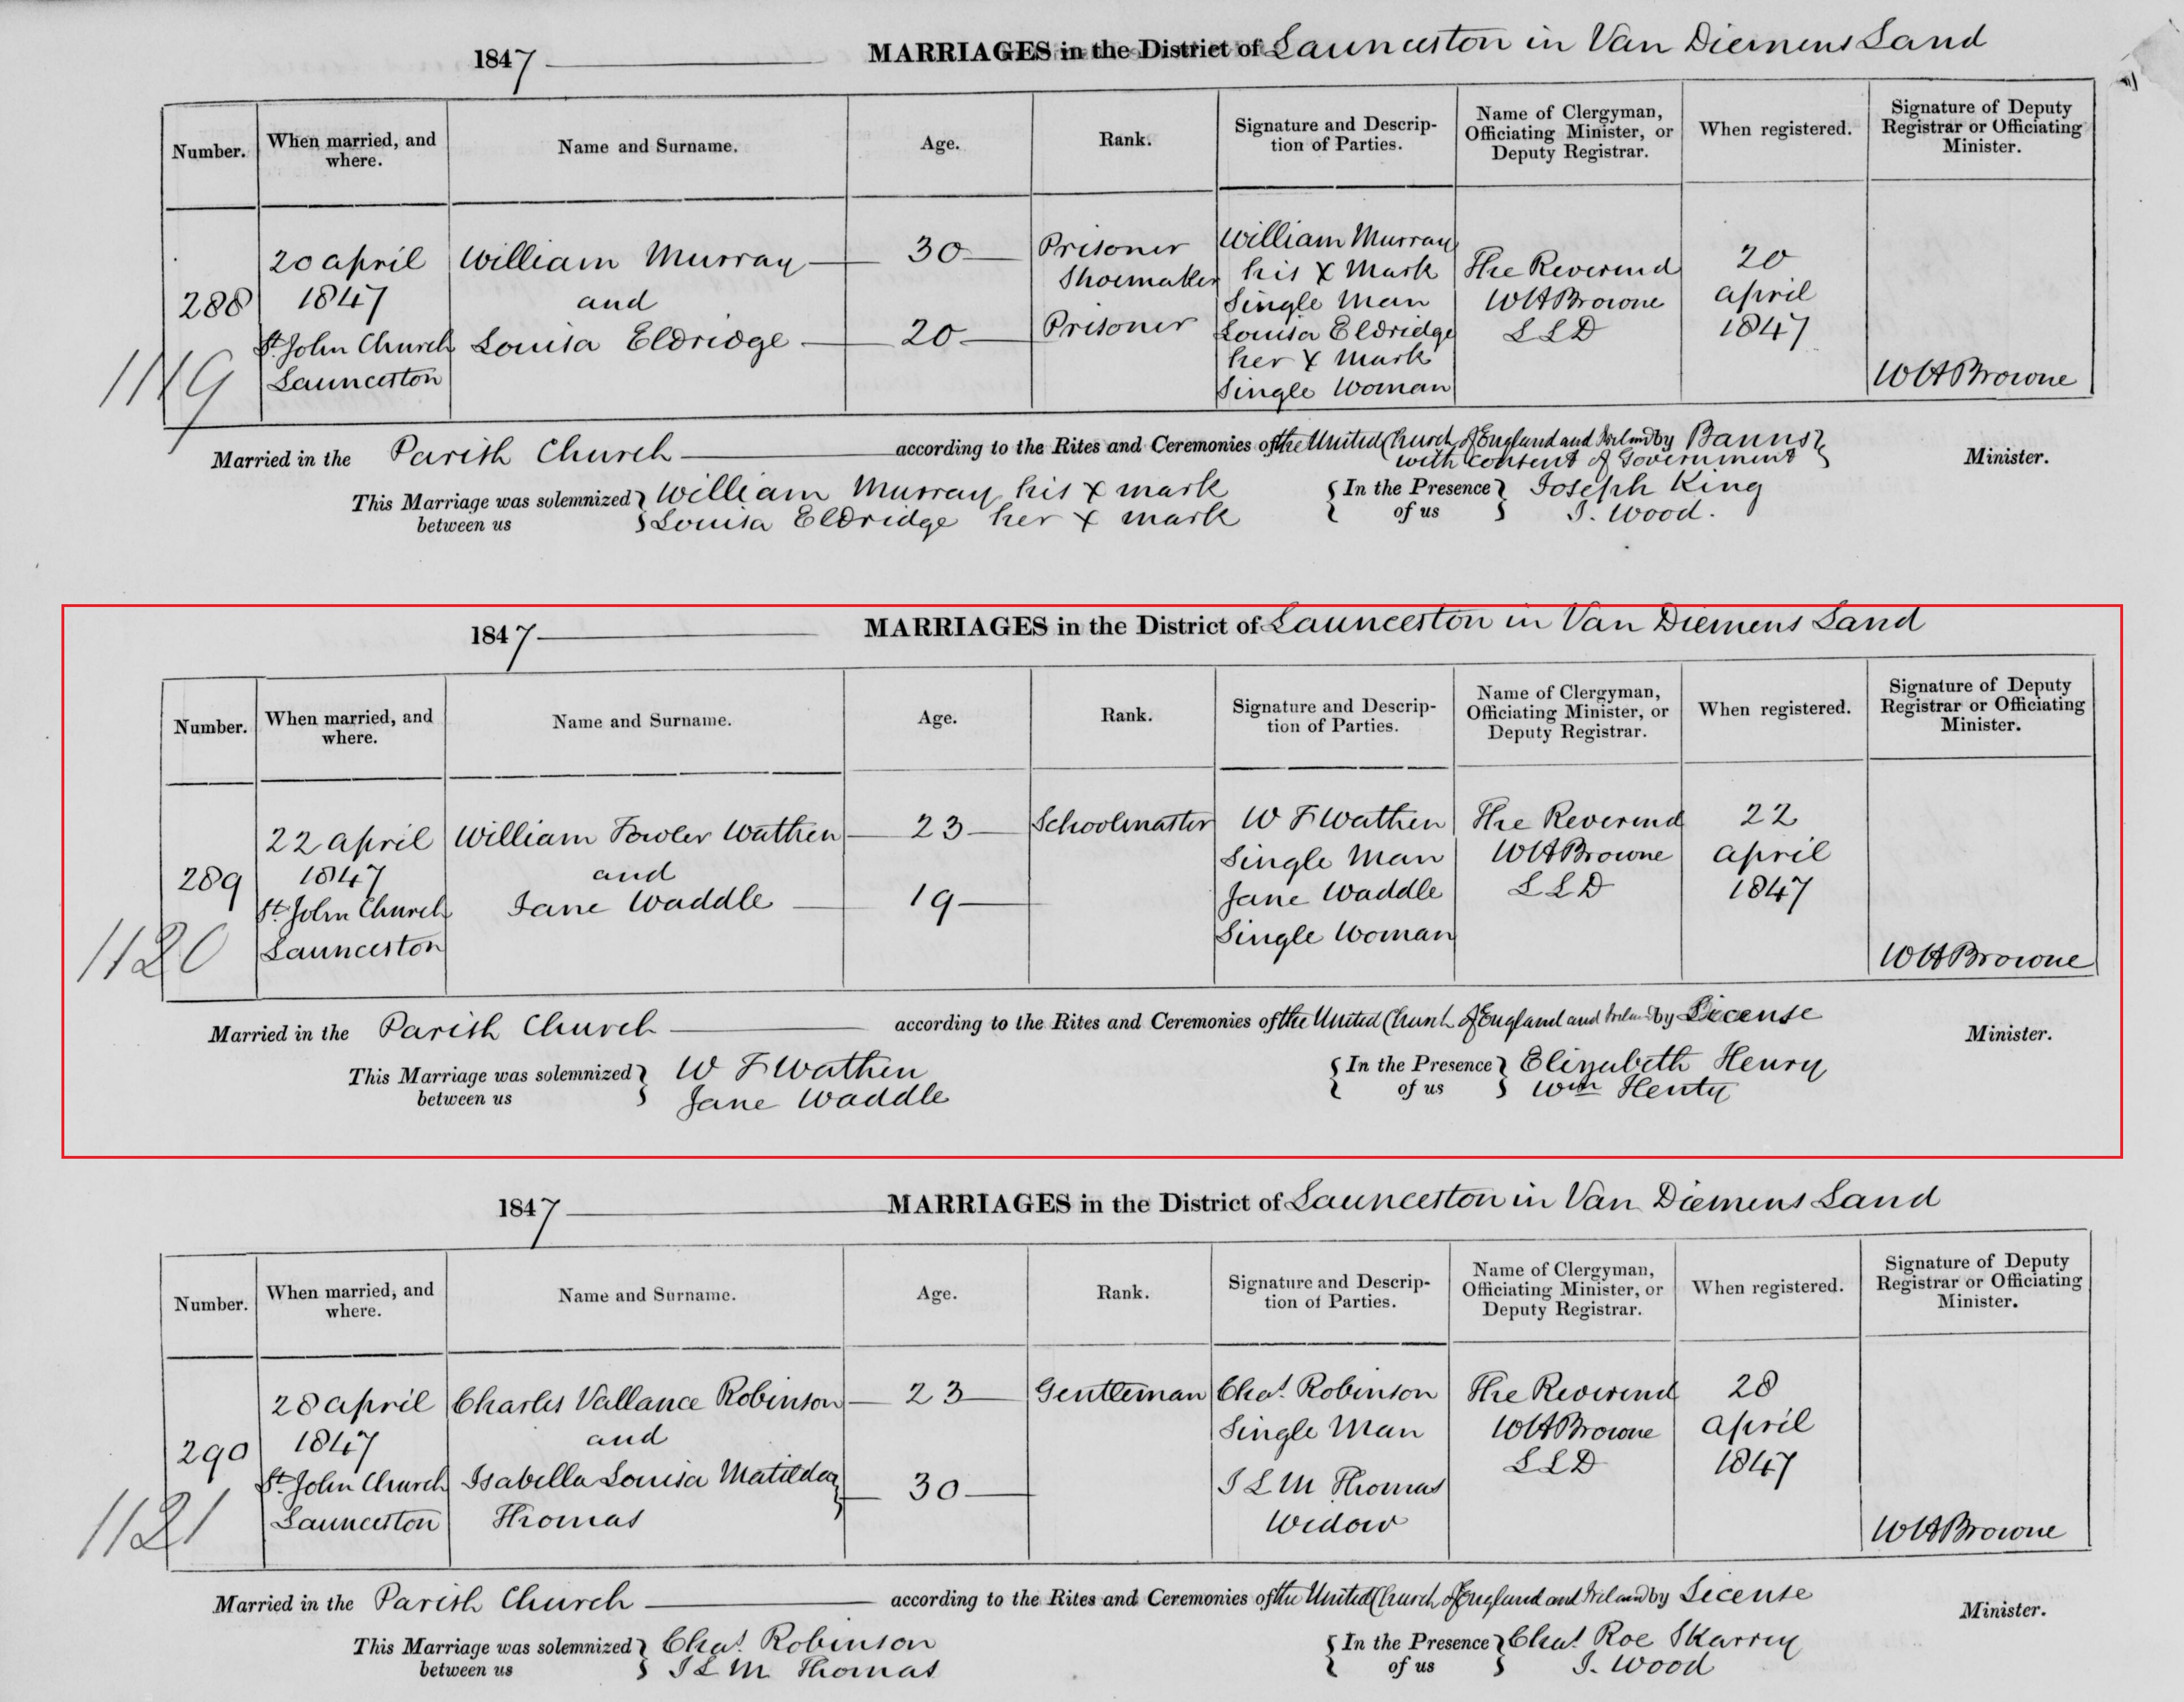 1847 MARRIAGES in the District of Launceston in Van Diemens Land
Number. When married, and where. Name and Surname. Age. Rank. Signature and Description of Parties. Name of Clergyman, Officiating Minister, or Deputy Registrar. When registered. Signature of Deputy Registrar or Officiating Minister.
288 20 april 1847 St. John Church Launceston
William Murray and Louisa Eldridge
30
20
Prisoner Shoemaker
Prisoner
William Murray his X Mark Single Man
Louisa Eldridge her X Mark Single Woman
The Reverend WHBrowne LLD
20 april 1847
WHBrowne
1119
Married in the Parish Church according to the Rites and Ceremonies of the United Church of England and Ireland by Banns with Consent of Government Minister.
This Marriage was solemnized between us William Murray his X mark In the Presence of us Joseph King
Louisa Eldridge her X mark J. Wood.
1847 MARRIAGES in the District of Launceston in Van Diemens Land
Number. When married, and where. Name and Surname. Age. Rank. Signature and Description of Parties. Name of Clergyman, Officiating Minister, or Deputy Registrar. When registered. Signature of Deputy Registrar or Officiating Minister.
289 22 april 1847 St. John Church Launceston
William Fowler Wathen and Jane Waddle
23
19
Schoolmaster
W F Wathen Single Man
Jane Waddle Single Woman
The Reverend WHBrowne LLD
22 april 1847
WHBrowne
1120
Married in the Parish Church according to the Rites and Ceremonies of the United Church of England and Ireland by License Minister.
This Marriage was solemnized between us W F Wathen In the Presence of us Elizabeth Henry
Jane Waddle Wm Henty
1847 MARRIAGES in the District of Launceston in Van Diemens Land
Number. When married, and where. Name and Surname. Age. Rank. Signature and Description of Parties. Name of Clergyman, Officiating Minister, or Deputy Registrar. When registered. Signature of Deputy Registrar or Officiating Minister.
290 28 april 1847 St. John Church Launceston
Charles Vallance Robinson and Isabella Louisa Matilda Thomas
23
30
Gentleman
Chas. Robinson Single Man
I L M Thomas Widow
The Reverend WHBrowne LLD
28 april 1847
WHBrowne
1121
Married in the Parish Church according to the Rites and Ceremonies of the United Church of England and Ireland by License Minister.
This Marriage was solemnized between us Chas. Robinson In the Presence of us Chas. Roe
I L M Thomas J. Wood